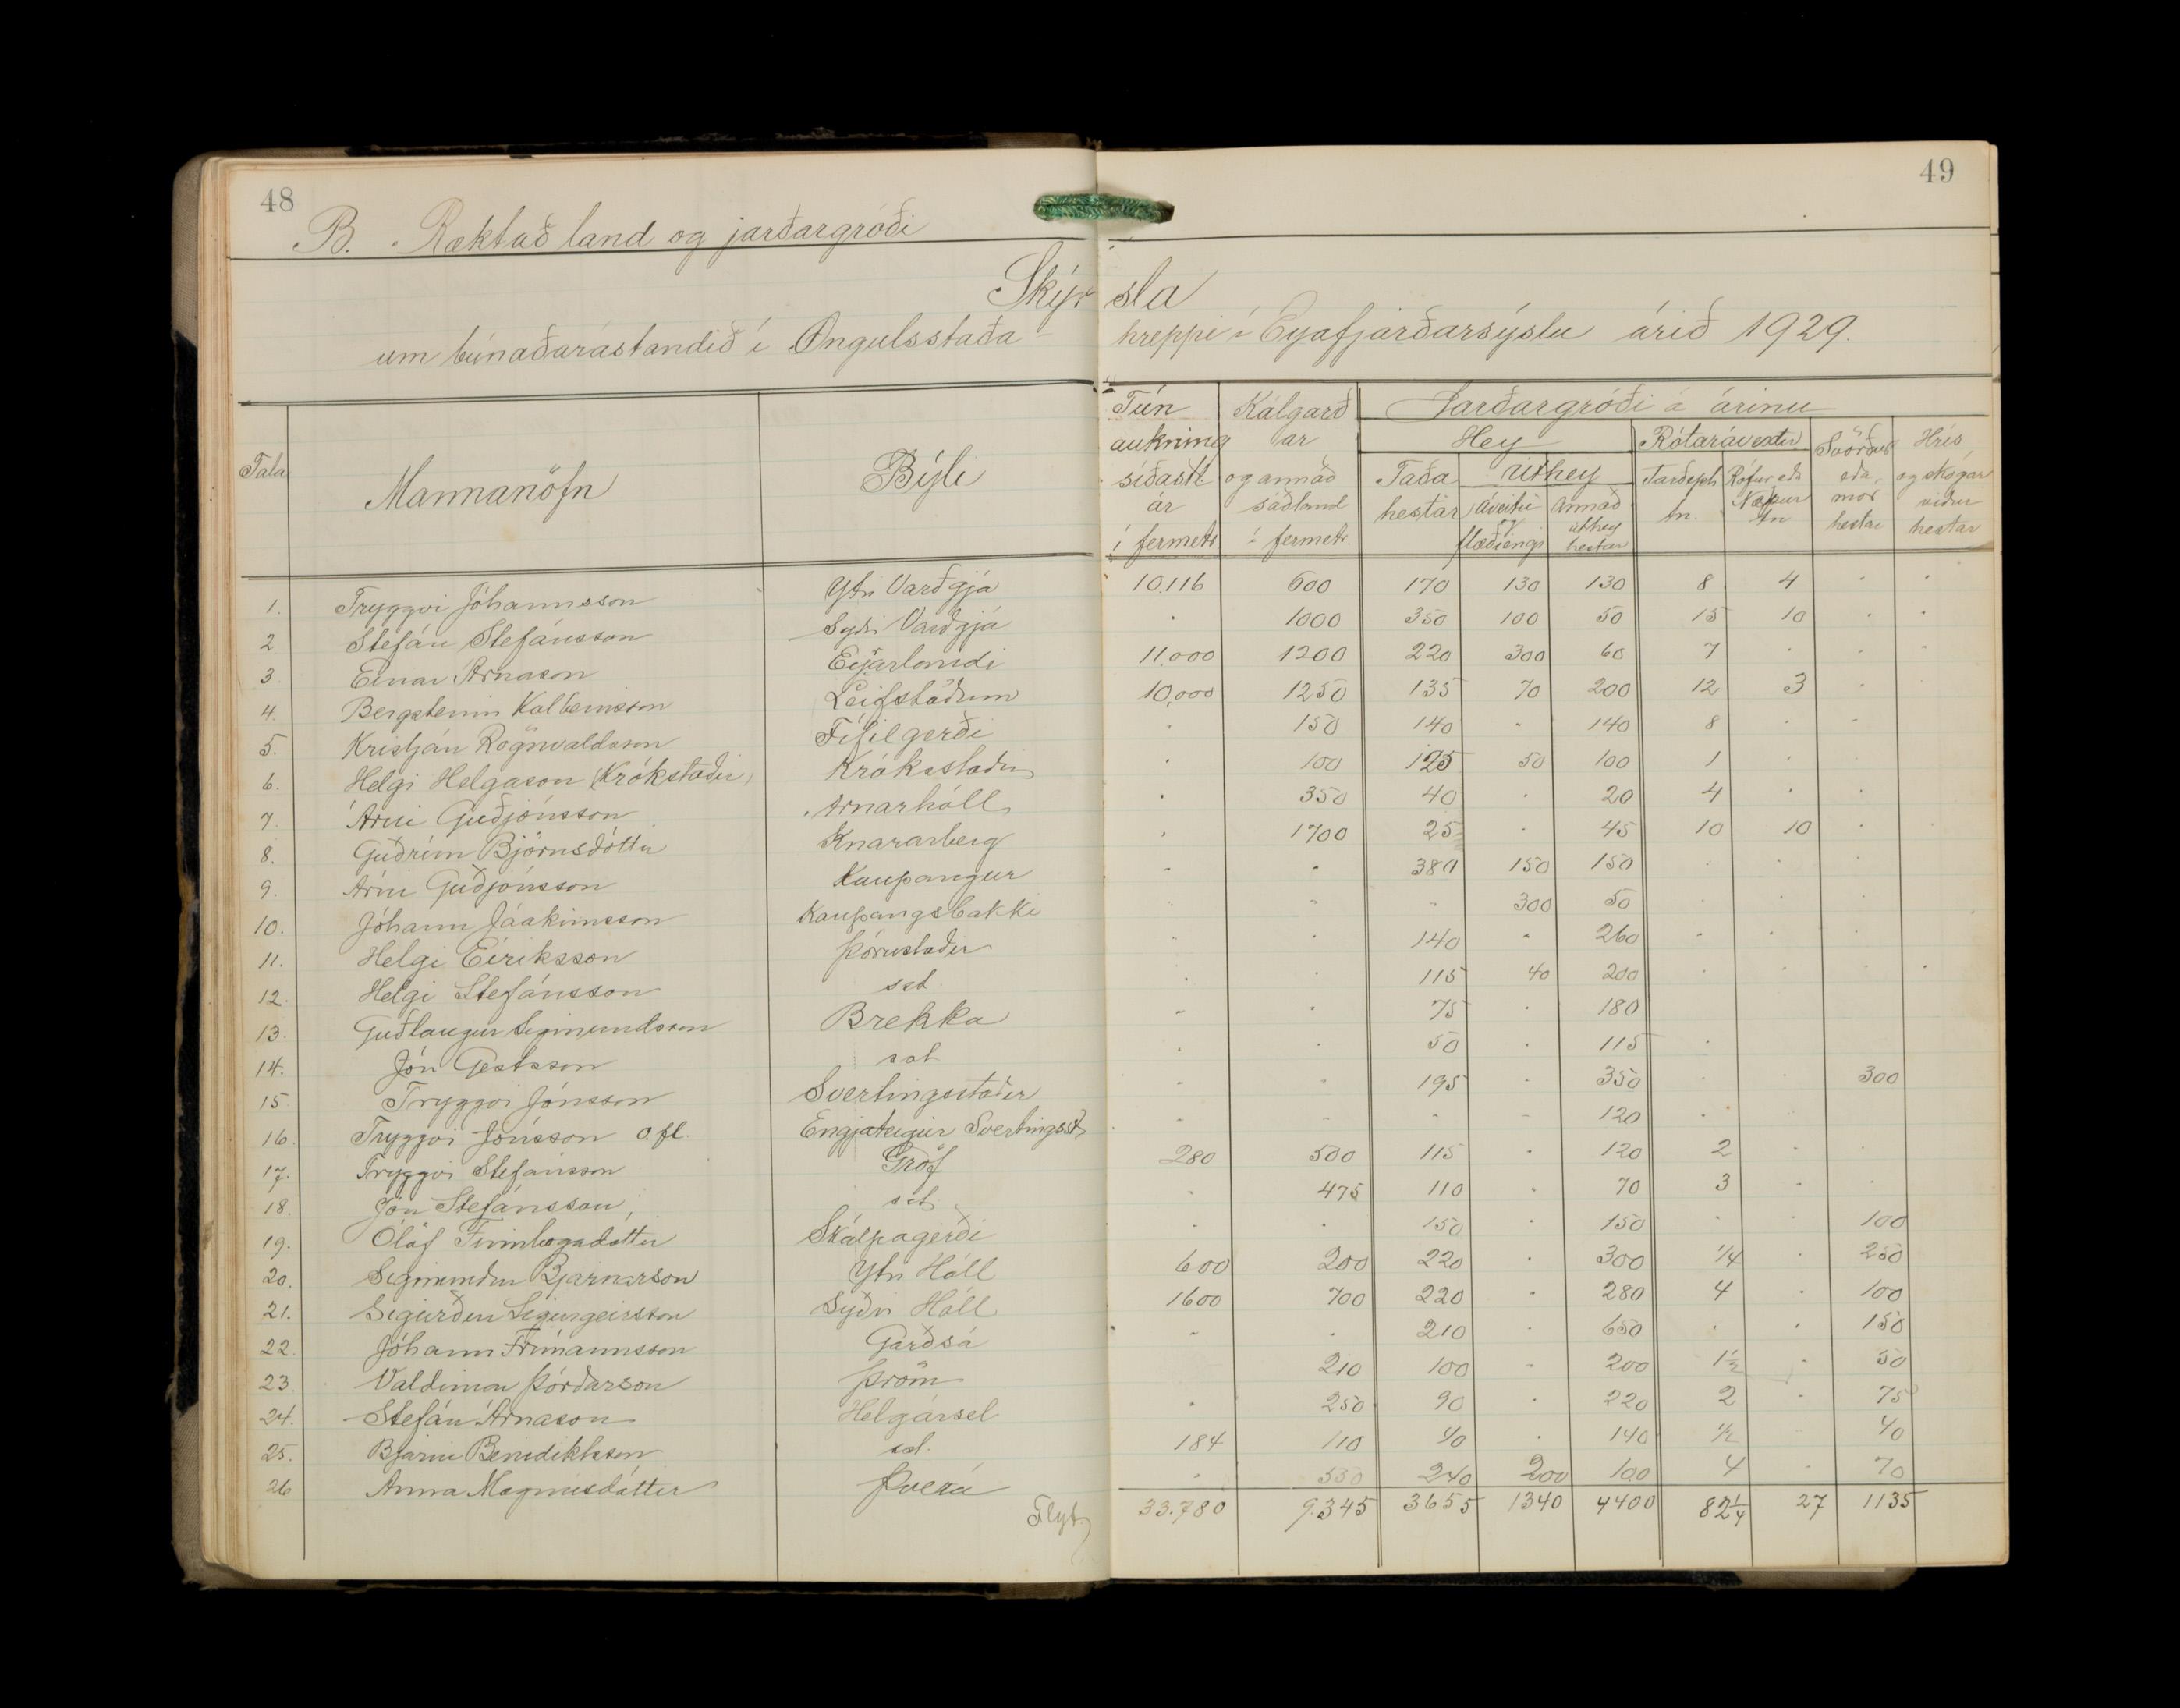 48
49
B. Ræktað land og jarðargróði
Skýrsla
um búnaðarástandið í Öngulsstaða-hreppi í Eyjafjarðarsýslu árið 1929.
Tala Mannanöfn Býli Tún aukning síðastl ár í fermetr Kálgarðar og annað sáðland í fermetr Jarðargróði á árinu
Hey Rótarávextir Svörður eða mór hestar Hrís og skógar viður hestar
Taða hestar Úthey Jarðepli tn Rófur eða Næpur tn
Áveitu og flæðiengi Annað úthey hestar
1. Tryggvi Jóhannsson Ytri Varðgjá 10,116 600 170 130 130 8 4 " "
2 Stefán Stefánsson Syðri Varðgjá " 1000 350 100 50 15 10 " "
3 Einar Árnason Eyjarlandi 11,000 1200 220 300 60 7 " " "
4. Bergsteinn Kolbeinsson Leifsstöðum 10,000 1250 135 70 200 12 3 "
5. Kristján Rögnvaldsson Fífilgerði " 150 140 " 140 8 " "
6. Helgi Helgason (Krókstaðir) Krókastaðir " 100 125 50 100 1 " "
7. Árni Guðjónsson Arnarhóll " 350 40 " 20 4 " "
8. Guðrún Björnsdóttir Knararberg " 1700 25 " 45 10 10 "
9. Árni Guðjónsson Kaupangur " " 380 150 150 " " "
10. Jóhann Jóakimsson Kaupangsbakki " " " 300 50 " " "
11. Helgi Eiríksson Þórustaðir " " 140 " 260 " " "
12. Helgi Stefánsson sst " " 115 40 200 " " " "
13. Guðlaugur Sigmundsson Brekka " " 75 " 180
14. Jón Gestsson sst " " 50 " 115 "
15 Tryggvi Jónsson Svertingsstaðir " " 195 " 350 " " 300
16. Tryggvi Jónsson o.fl. Engjateigur Svertingsst " " " " 120 "
17. Tryggvi Stefánsson Gröf 280 500 115 " 120 2 " "
18. Jón Stefánsson sst " 475 110 " 70 3 " "
19. Ólöf Finnbogadóttir Skálpagerði " " 150 " 150 " " 100
20. Sigmundur Bjarnarson Ytri Hóll 600 200 220 " 300 1/4 " 250
21. Sigurður Sigurgeirsson Syðri Hóll 1600 700 220 " 280 4 " 100
22. Jóhann Frímannsson Garðsá " " 210 " 650 " " 150
23. Valdimar Þórðarson Þröm 210 100 " 200 1 1/2 " 50
24. Stefán Árnason Helgársel " 250 90 " 220 2 " 75
25. Bjarni Benediktsson sst. 184 110 40 " 140 1/2 40
26 Anna Magnúsdóttir Þverá " 550 240 200 100 4 " 70
Flyt 33.780 9.345 3655 1340 4400 82 1/4 27 1135